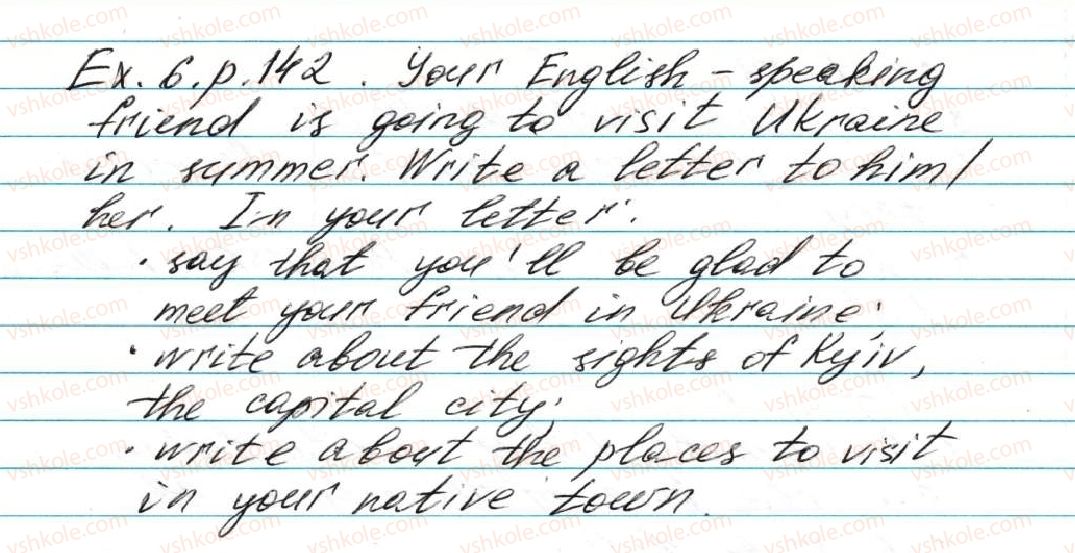 Ex. 6. p. 142. Your English-speaking
friend is going to visit Ukraine
in summer. Write a letter to him/
her. In your letter:
· say that you'll be glad to
meet your friend in Ukraine;
· write about the sights of Kyiv,
the capital city;
· write about the places to visit
in your native town.
vshkole.com